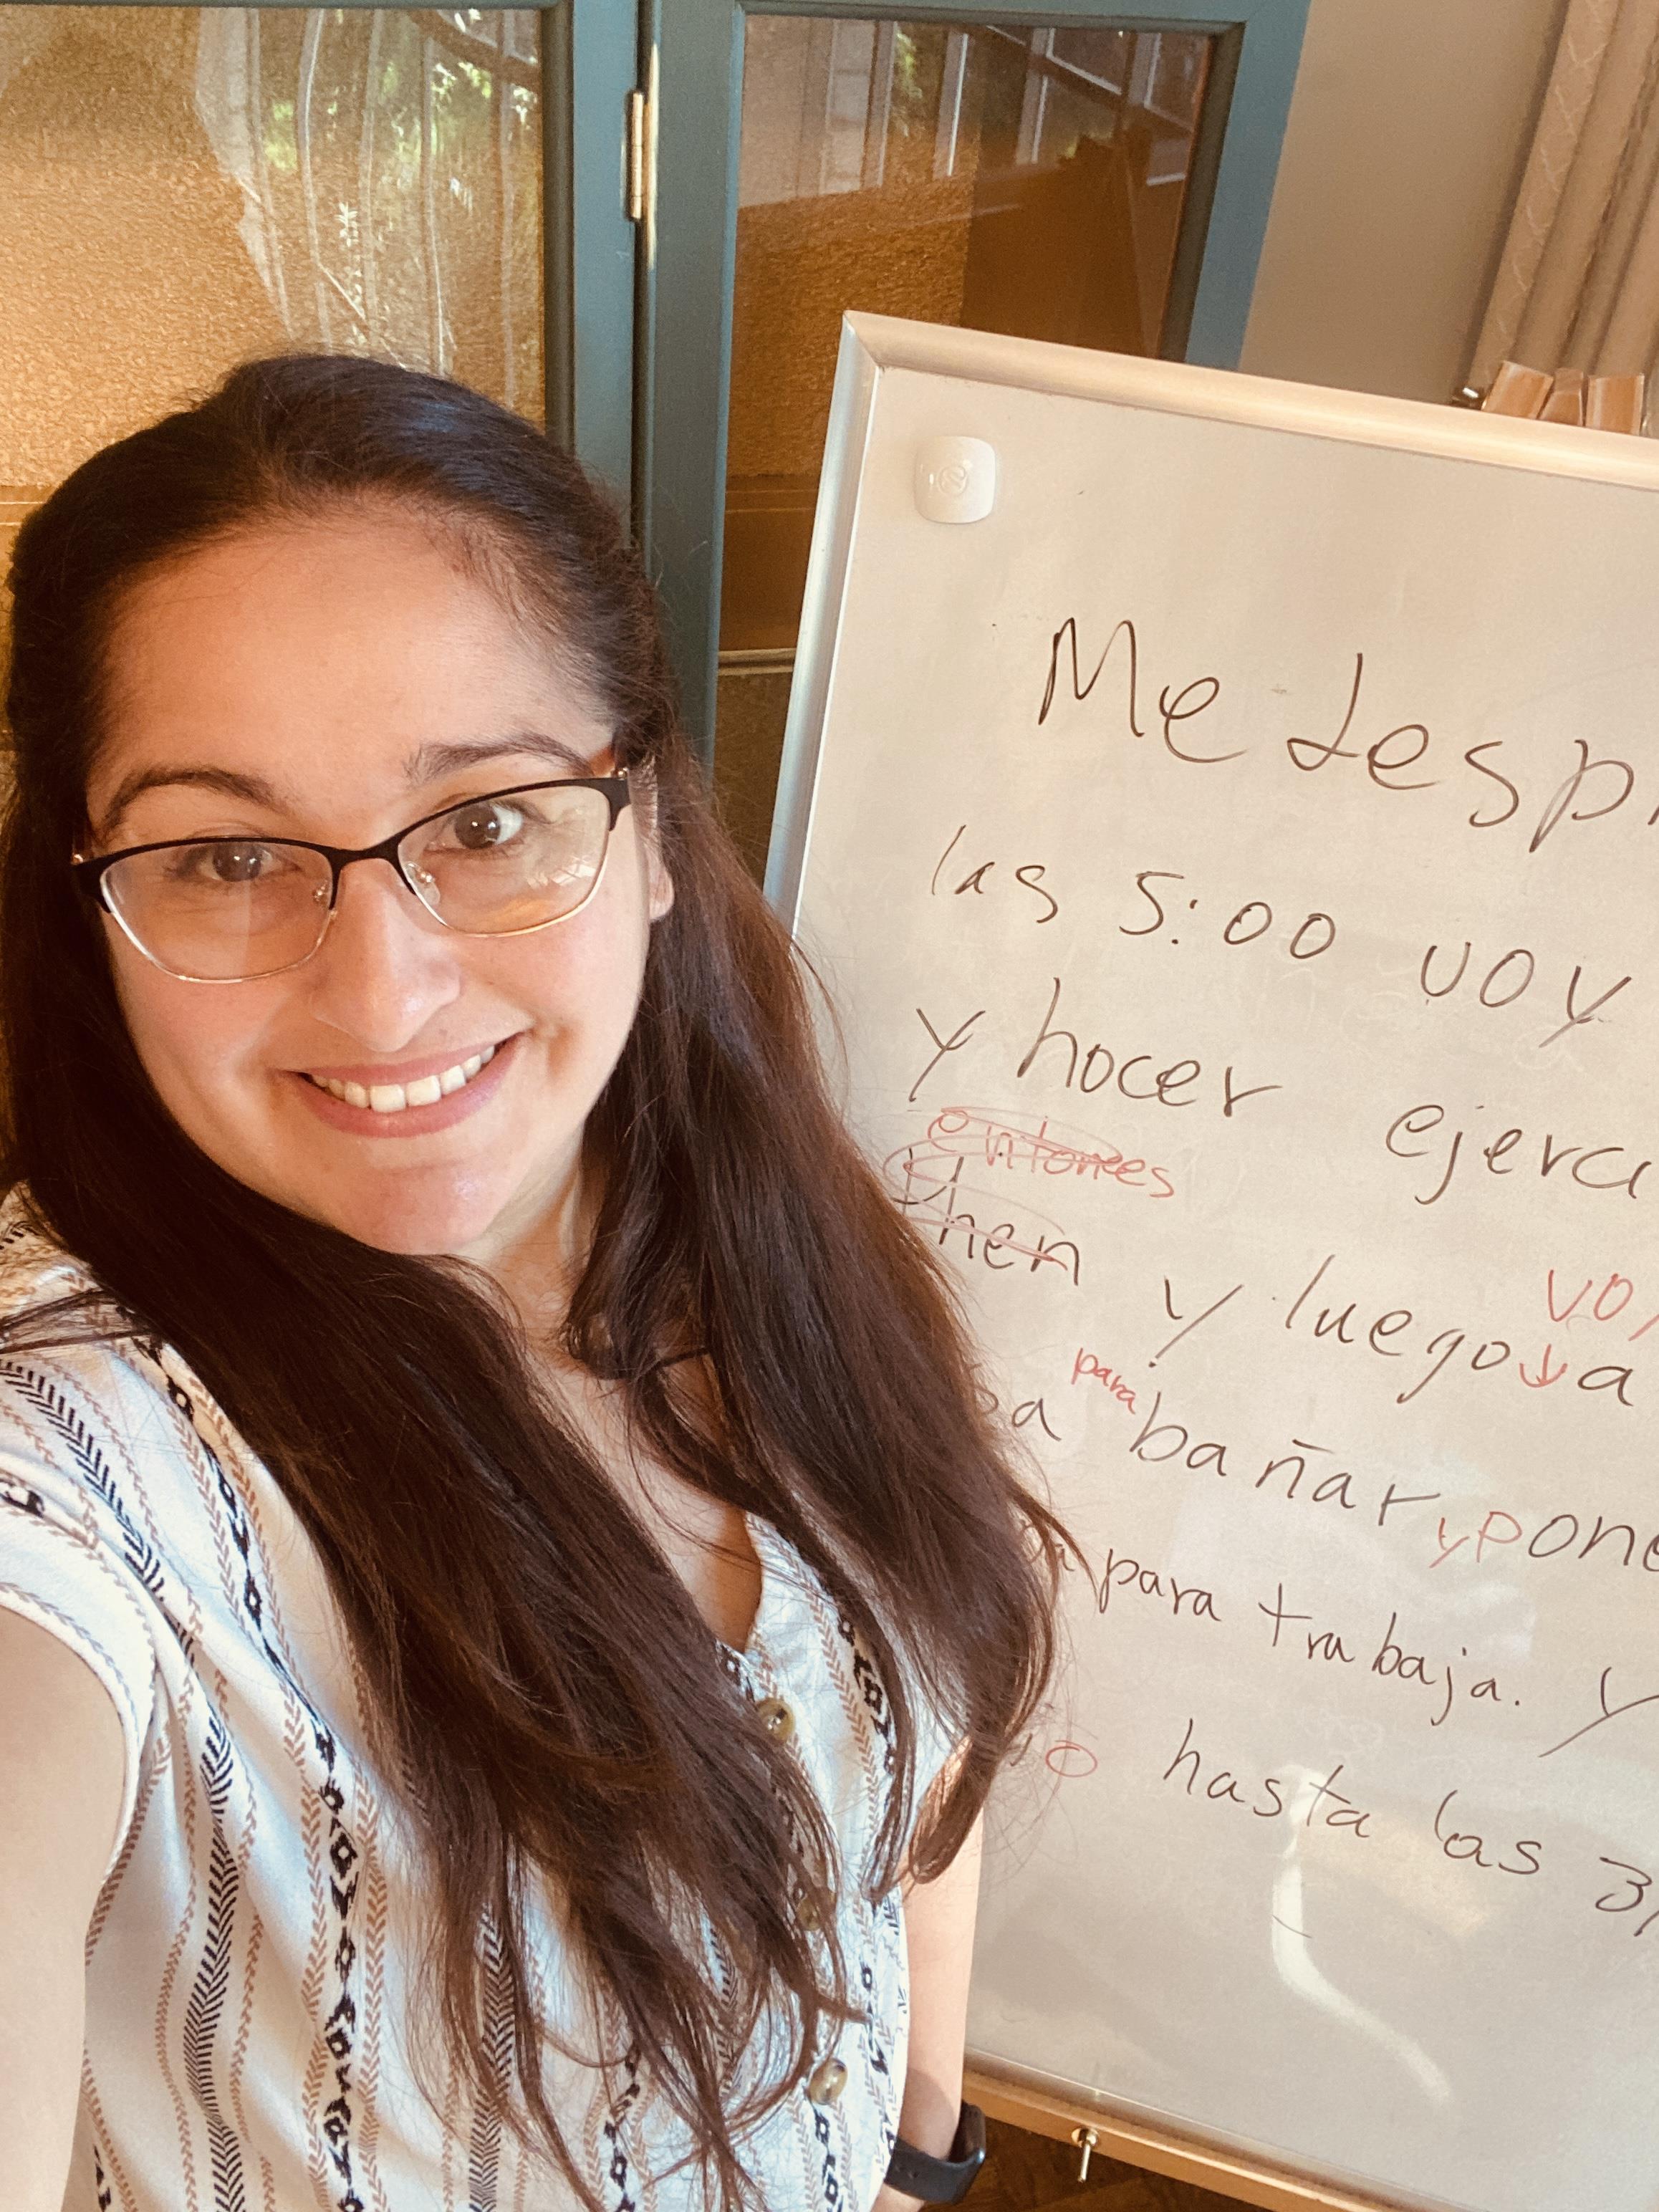 Me desp
las 5:00 voy
y hocer ejerci
entonces
then y luego voy a
para
bañar, y pone
para trabaja. Y
o hasta las 3